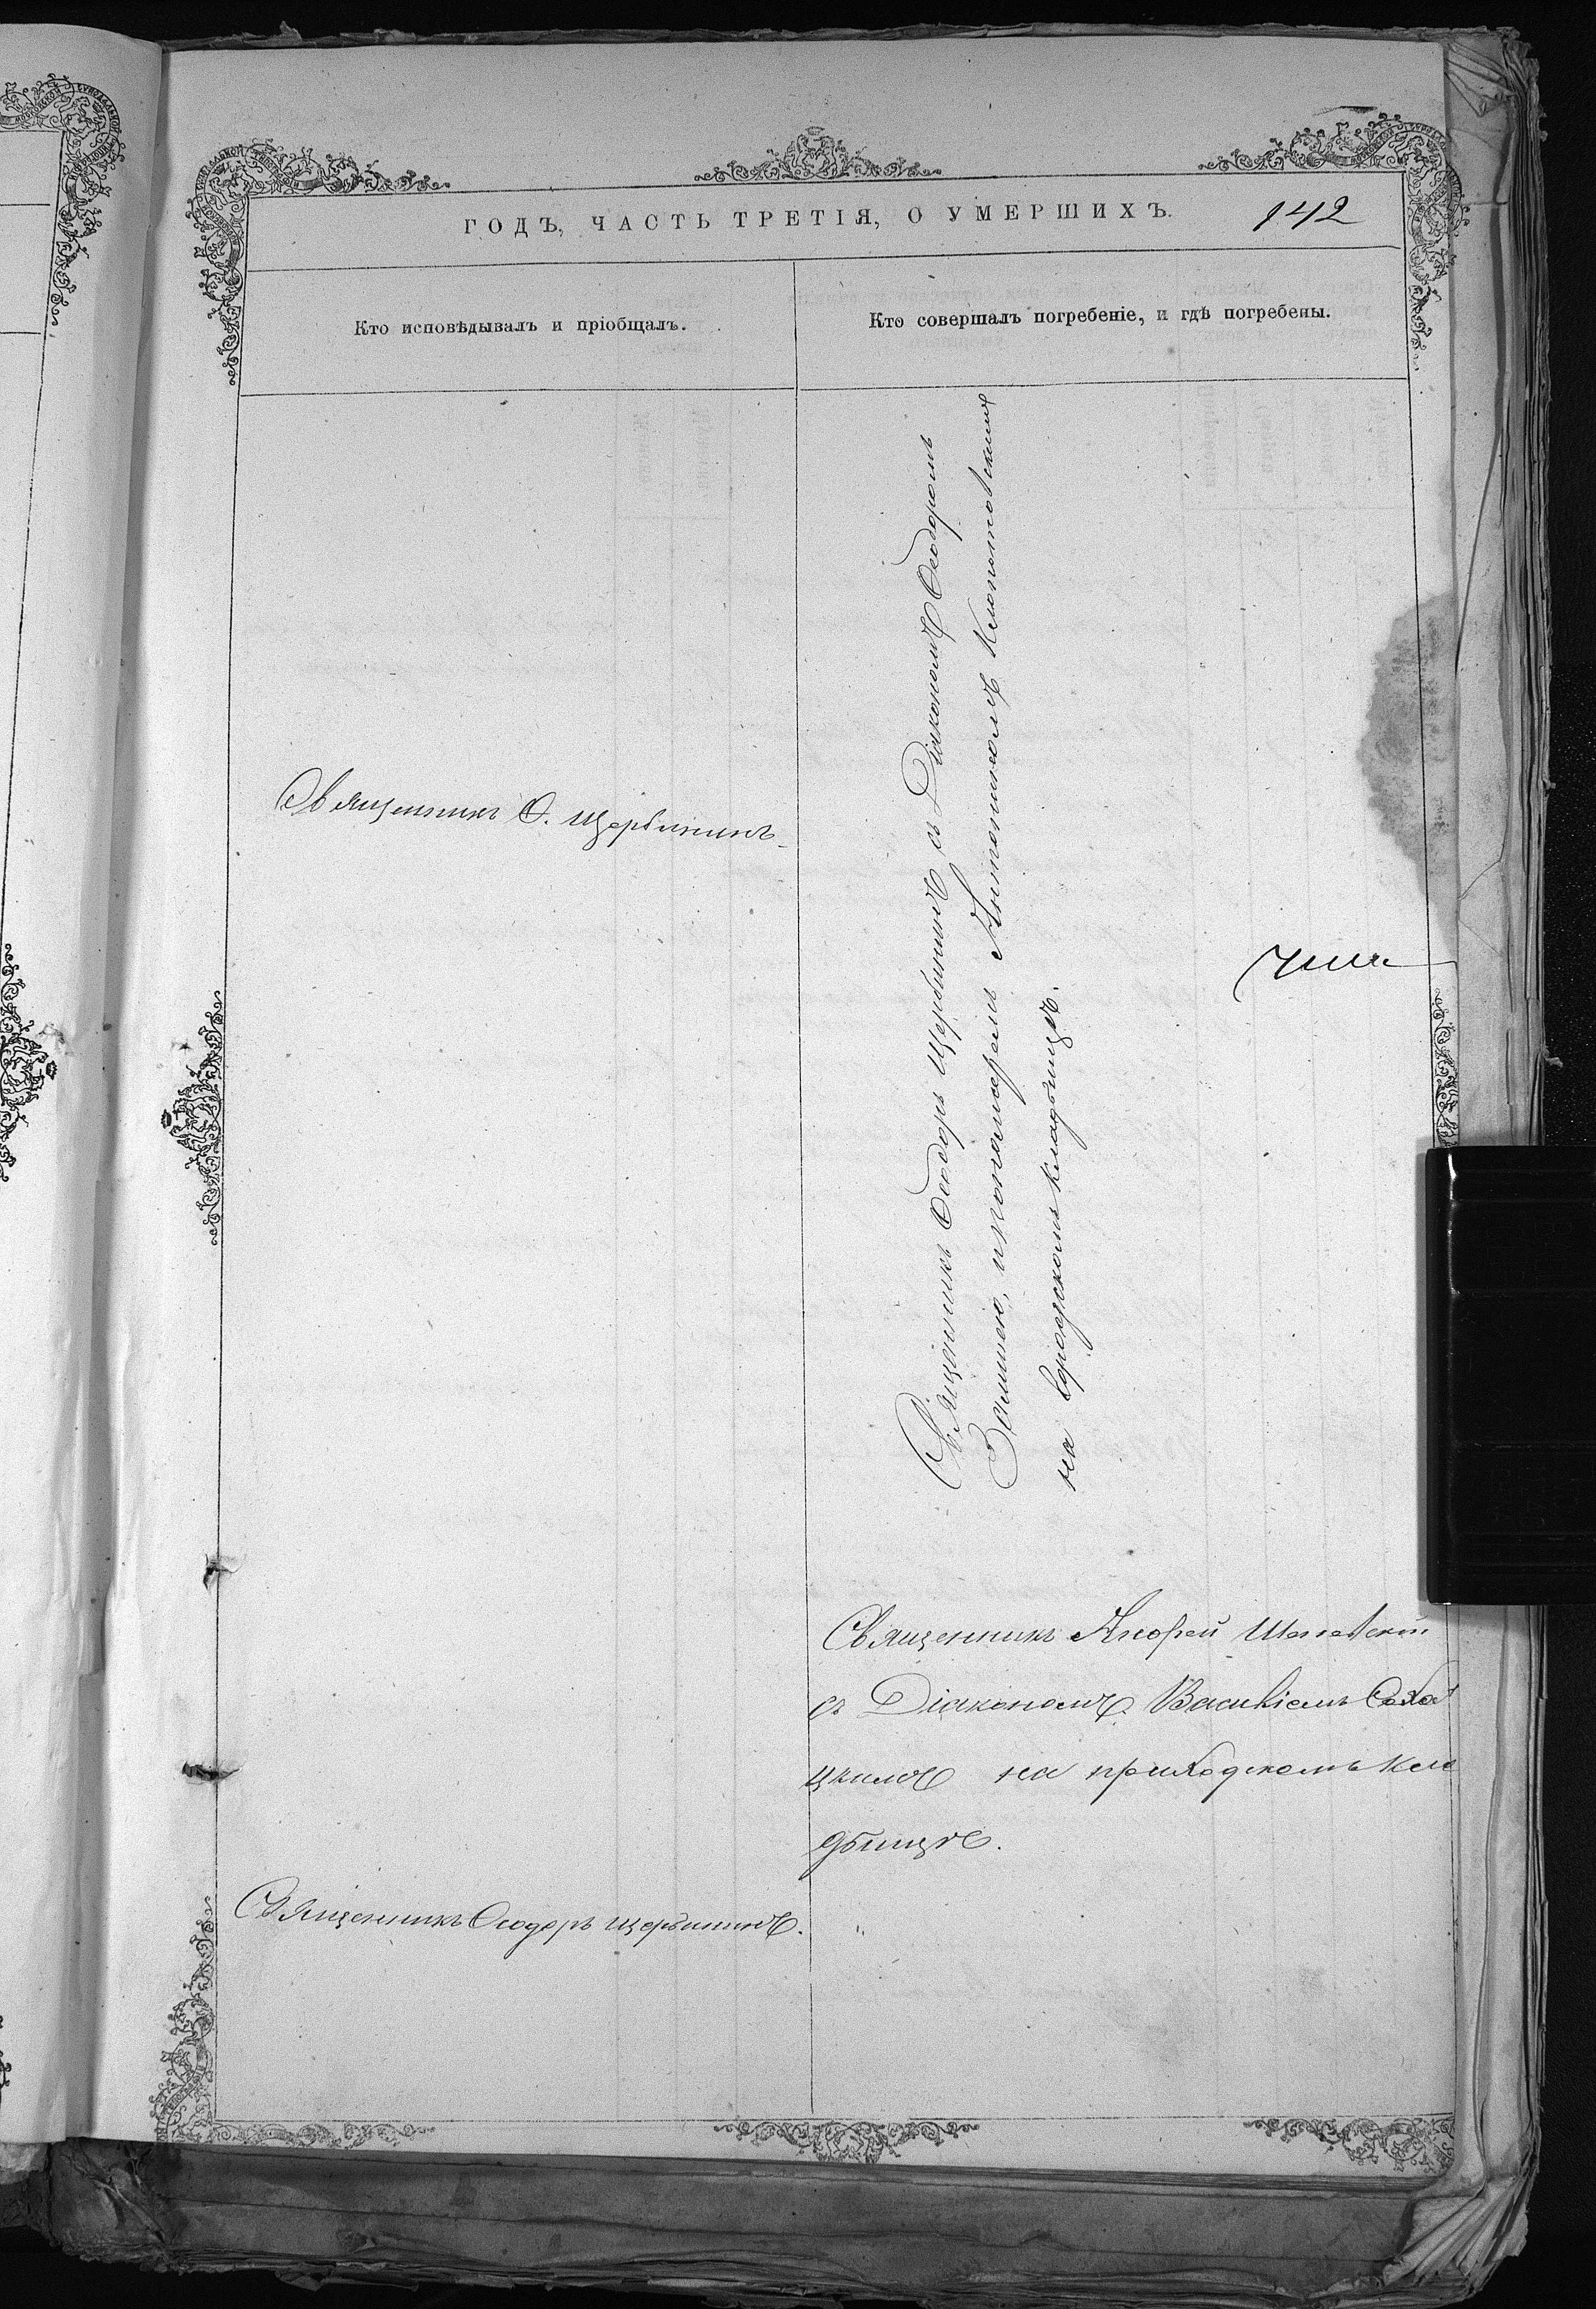 ГОДЪ, ЧАСТЬ ТРЕТІЯ, О УМЕРШИХЪ.
142
Кто исповѣдывалъ и пріобщалъ.
Кто совершалъ погребеніе, и гдѣ погребены.
Священникъ Ѳ. Щербининъ
Священникъ Ѳеодоръ Щербининъ съ Діакономъ Ѳеодоромъ
и пономаремъ Антониномъ Клопотовскимъ
на городскомъ кладбищѣ.
Священникъ Андрей
съ Діакономъ Василіемъ Сохац
цкимъ на приходскомъ кла
дбищѣ.
Священникъ Ѳеодоръ Щербининъ.
"